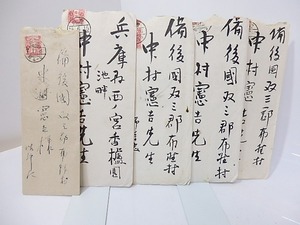 備後國双三郡布野村
中村憲吉先生
備後國双三郡布野村
中村憲吉先生
備後國双三郡布野村
中村憲吉先生
兵庫縣西ノ宮香櫨園
池畔
中村憲吉先生
備後國双三郡布野村
中村憲吉